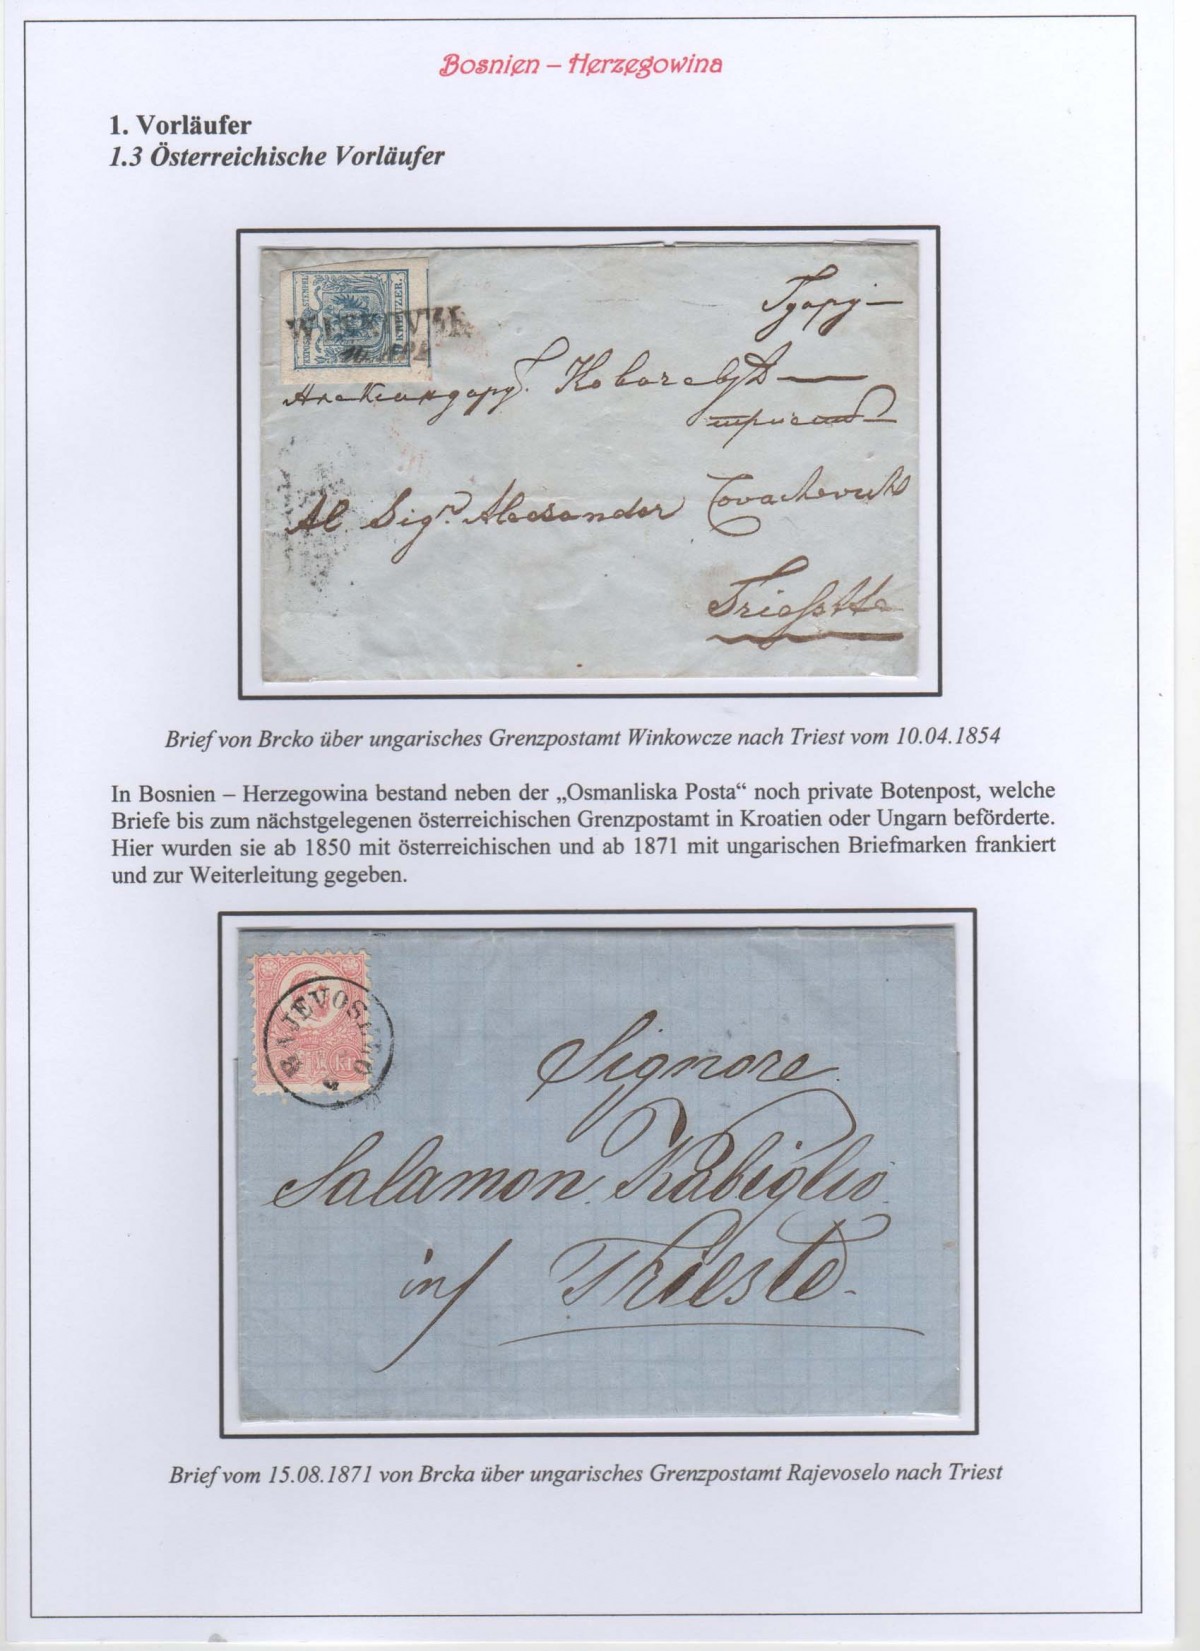 Bosnien – Herzegowina
1. Vorläufer
1.3 Österreichische Vorläufer
KREUZER.
Александару
Al Sigr. Alecsander Covachevich
Triesste
Brief von Brcko über ungarisches Grenzpostamt Winkowcze nach Triest vom 10.04.1854
In Bosnien – Herzegowina bestand neben der „Osmanliska Posta“ noch private Botenpost, welche
Briefe bis zum nächstgelegenen österreichischen Grenzpostamt in Kroatien oder Ungarn beförderte.
Hier wurden sie ab 1850 mit österreichischen und ab 1871 mit ungarischen Briefmarken frankiert
und zur Weiterleitung gegeben.
RAJEVOSELLO
KR
Signore
Salamon Kabiglio
in
Trieste.
Brief vom 15.08.1871 von Brcka über ungarisches Grenzpostamt Rajevoselo nach Triest